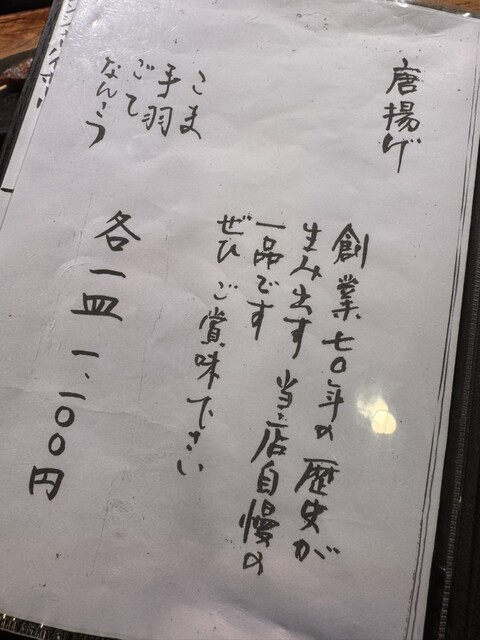 唐揚げ
創業七〇年の歴史が
生み出す 当店自慢の
一品です
ぜひご賞味下さい
こま
手羽
ごて
なんこつ
各一皿 一、一〇〇円